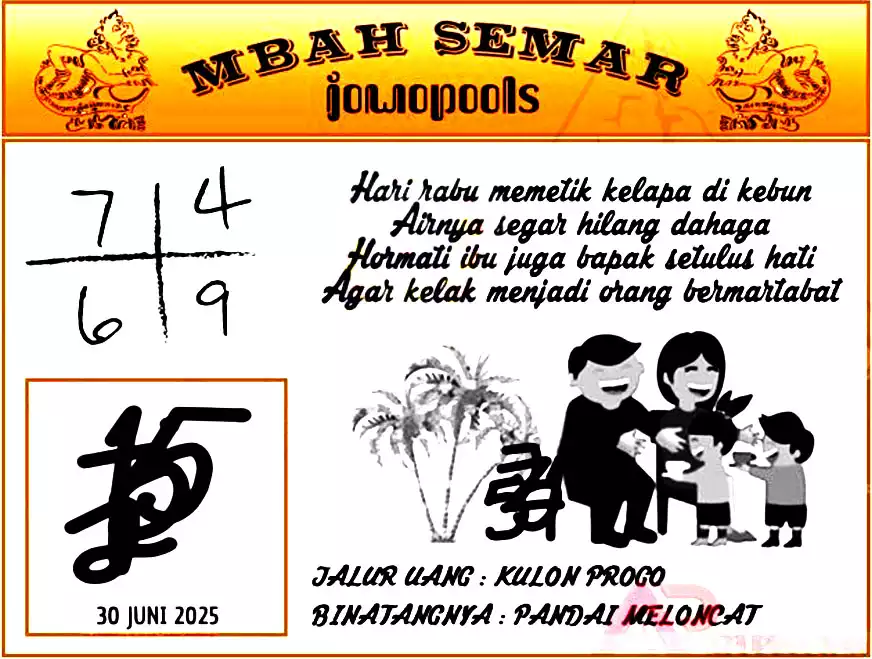 MBAH SEMAR
jowopools
7 4
6 9
Hari rabu memetik kelapa di kebun
Airnya segar hilang dahaga
Hormati ibu juga bapak setulus hati
Agar kelak menjadi orang bermartabat
30 JUNI 2025
JALUR UANG : KULON PROGO
BINATANGNYA : PANDAI MELONCAT